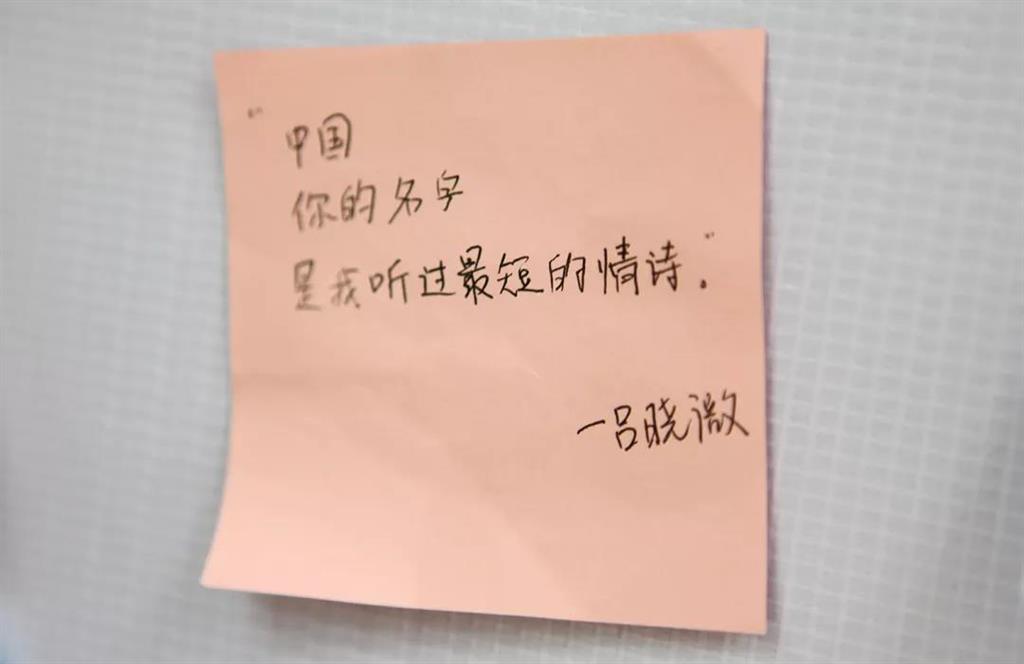 "中国
你的名字
是我听过最短的情诗."
—吕晓微